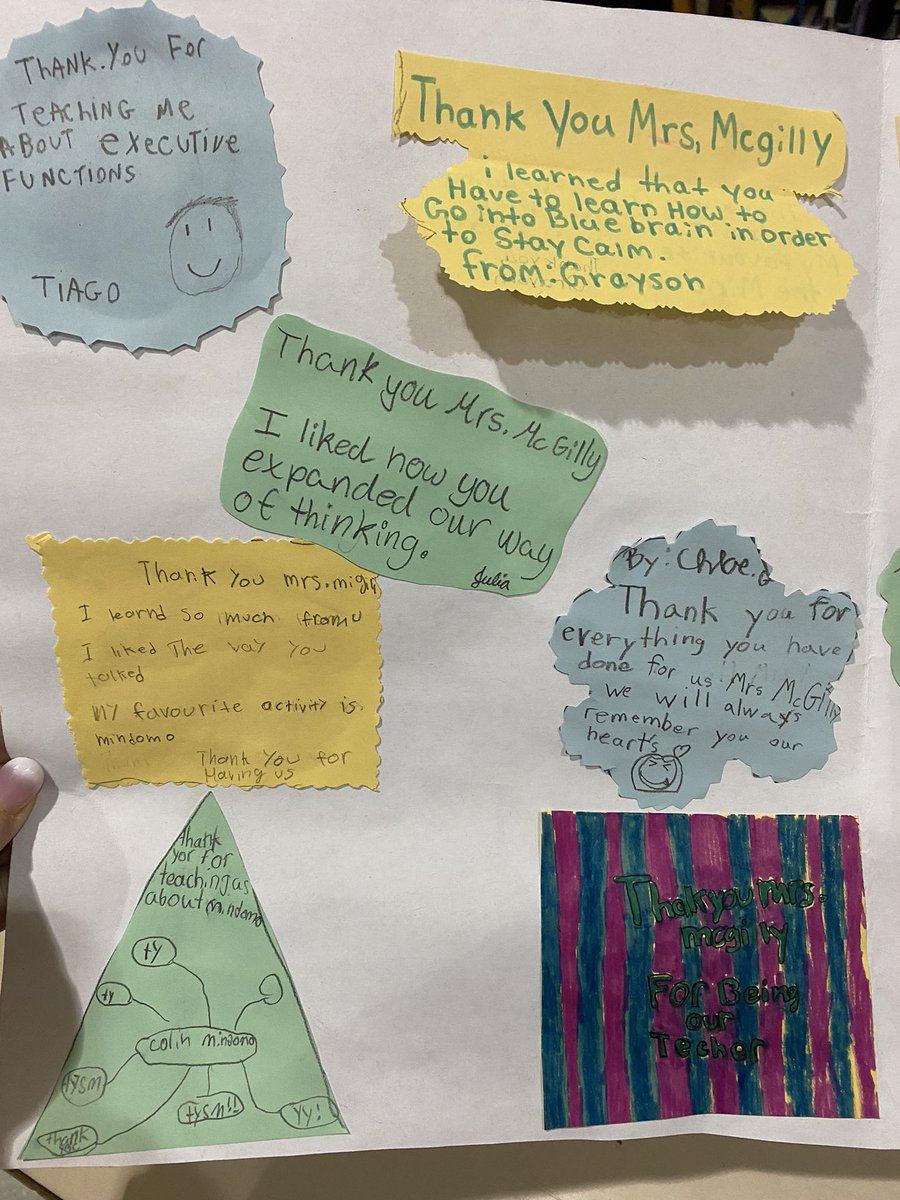 THANK.YOU FOR
TEACHING ME
ABOUT EXECUTIVE
FUNCTIONS
TIAGO
Thank You Mrs, Mcgilly
i learned that you
Have to learn How to
Go into Blue brain in order
to Stay Calm.
from: Grayson
Thank you Mrs. McGilly
I liked how you
expanded our way
of thinking.
Julia
Thank you mrs.migily
I learnd so much from u
I liked The way you
talked
my favourite activity is
mindomo
Thank You for
Having us
By: Chloe.d
Thank you for
everything you have
done for us Mrs McGilly
we will always
remember you our
heart's
thank
yor for
teaching us
about mindomo
ty
ty
colin mindomo
tysm
tysm!!
yy!
thank
Thakyou mrs.
mcgilly
For Being
our
Techer